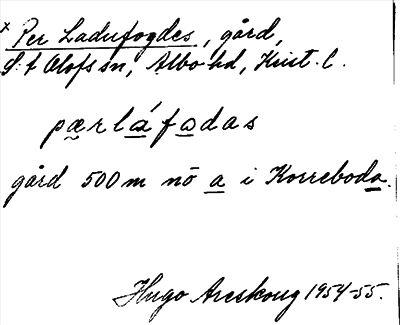 x Per Ladufogdes, gård,
S:t Olofs sn, Albo hd, Krist. l.
pærlá fɷdas
gård 500 m nö a i Korreboda.
Hugo Areskoug 1954-55.